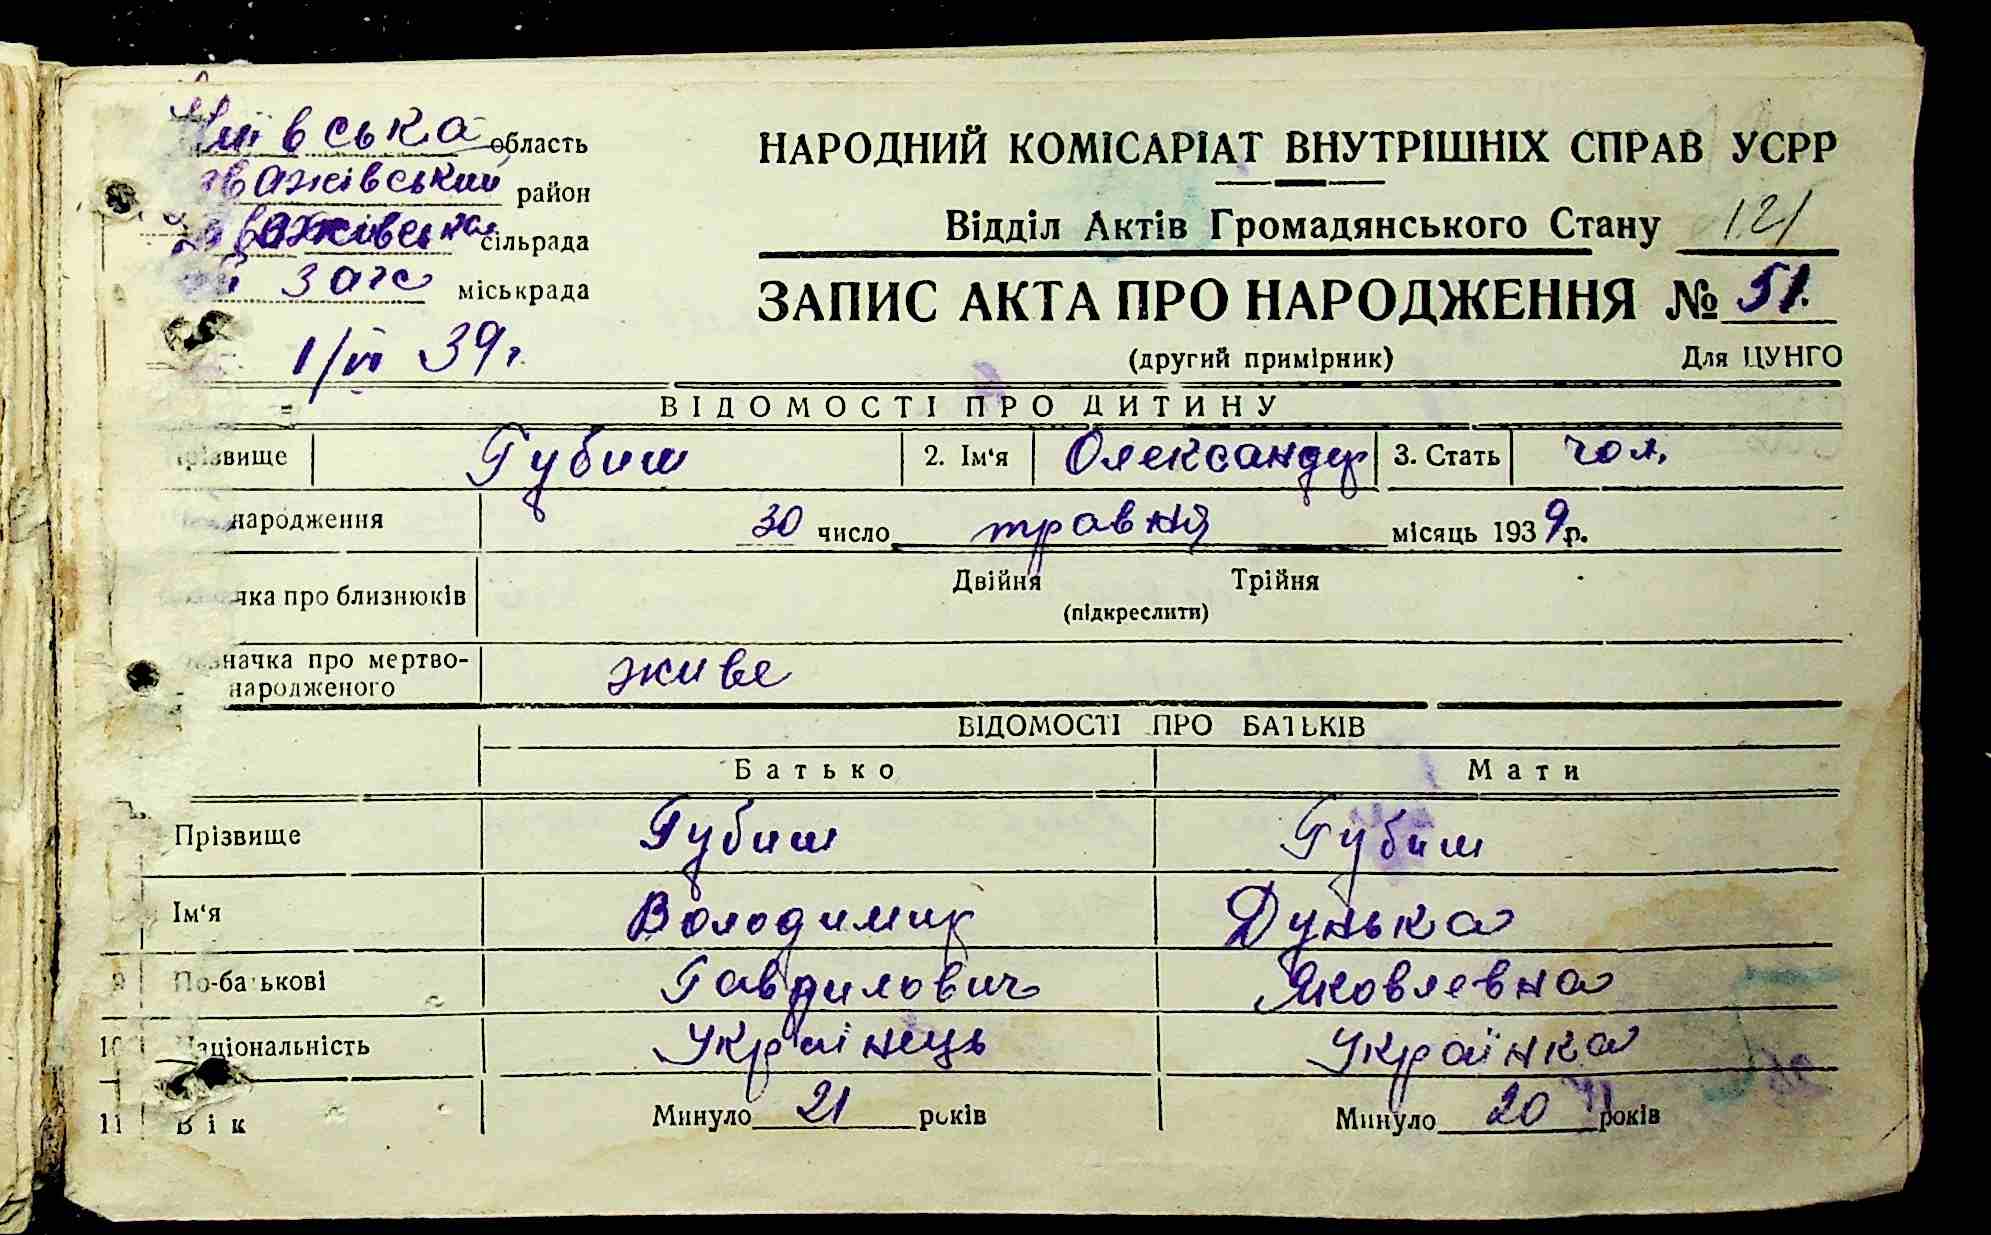 Київська область
район
сільрада
загс міськрада
1/VI 39 г.
НАРОДНИЙ КОМІСАРІАТ ВНУТРІШНІХ СПРАВ УСРР
Відділ Актів Громадянського Стану 121
ЗАПИС АКТА ПРО НАРОДЖЕННЯ № 51.
(другий примірник) Для ЦУНГО
ВІДОМОСТІ ПРО ДИТИНУ
різвище Губиш 2. Ім'я Олександр 3. Стать чол.
народження 30 число травня місяць 1939 р.
чка про близнюків Двійня Трійня
(підкреслити)
значка про мертво-
народженого живе
ВІДОМОСТІ ПРО БАТЬКІВ
Батько Мати
Прізвище Губиш Губиш
Ім'я Володимир Дунька
9 По-батькові Гаврилович Яковлевна
10 Національність Українець Українка
11 Вік Минуло 21 років Минуло 20 років